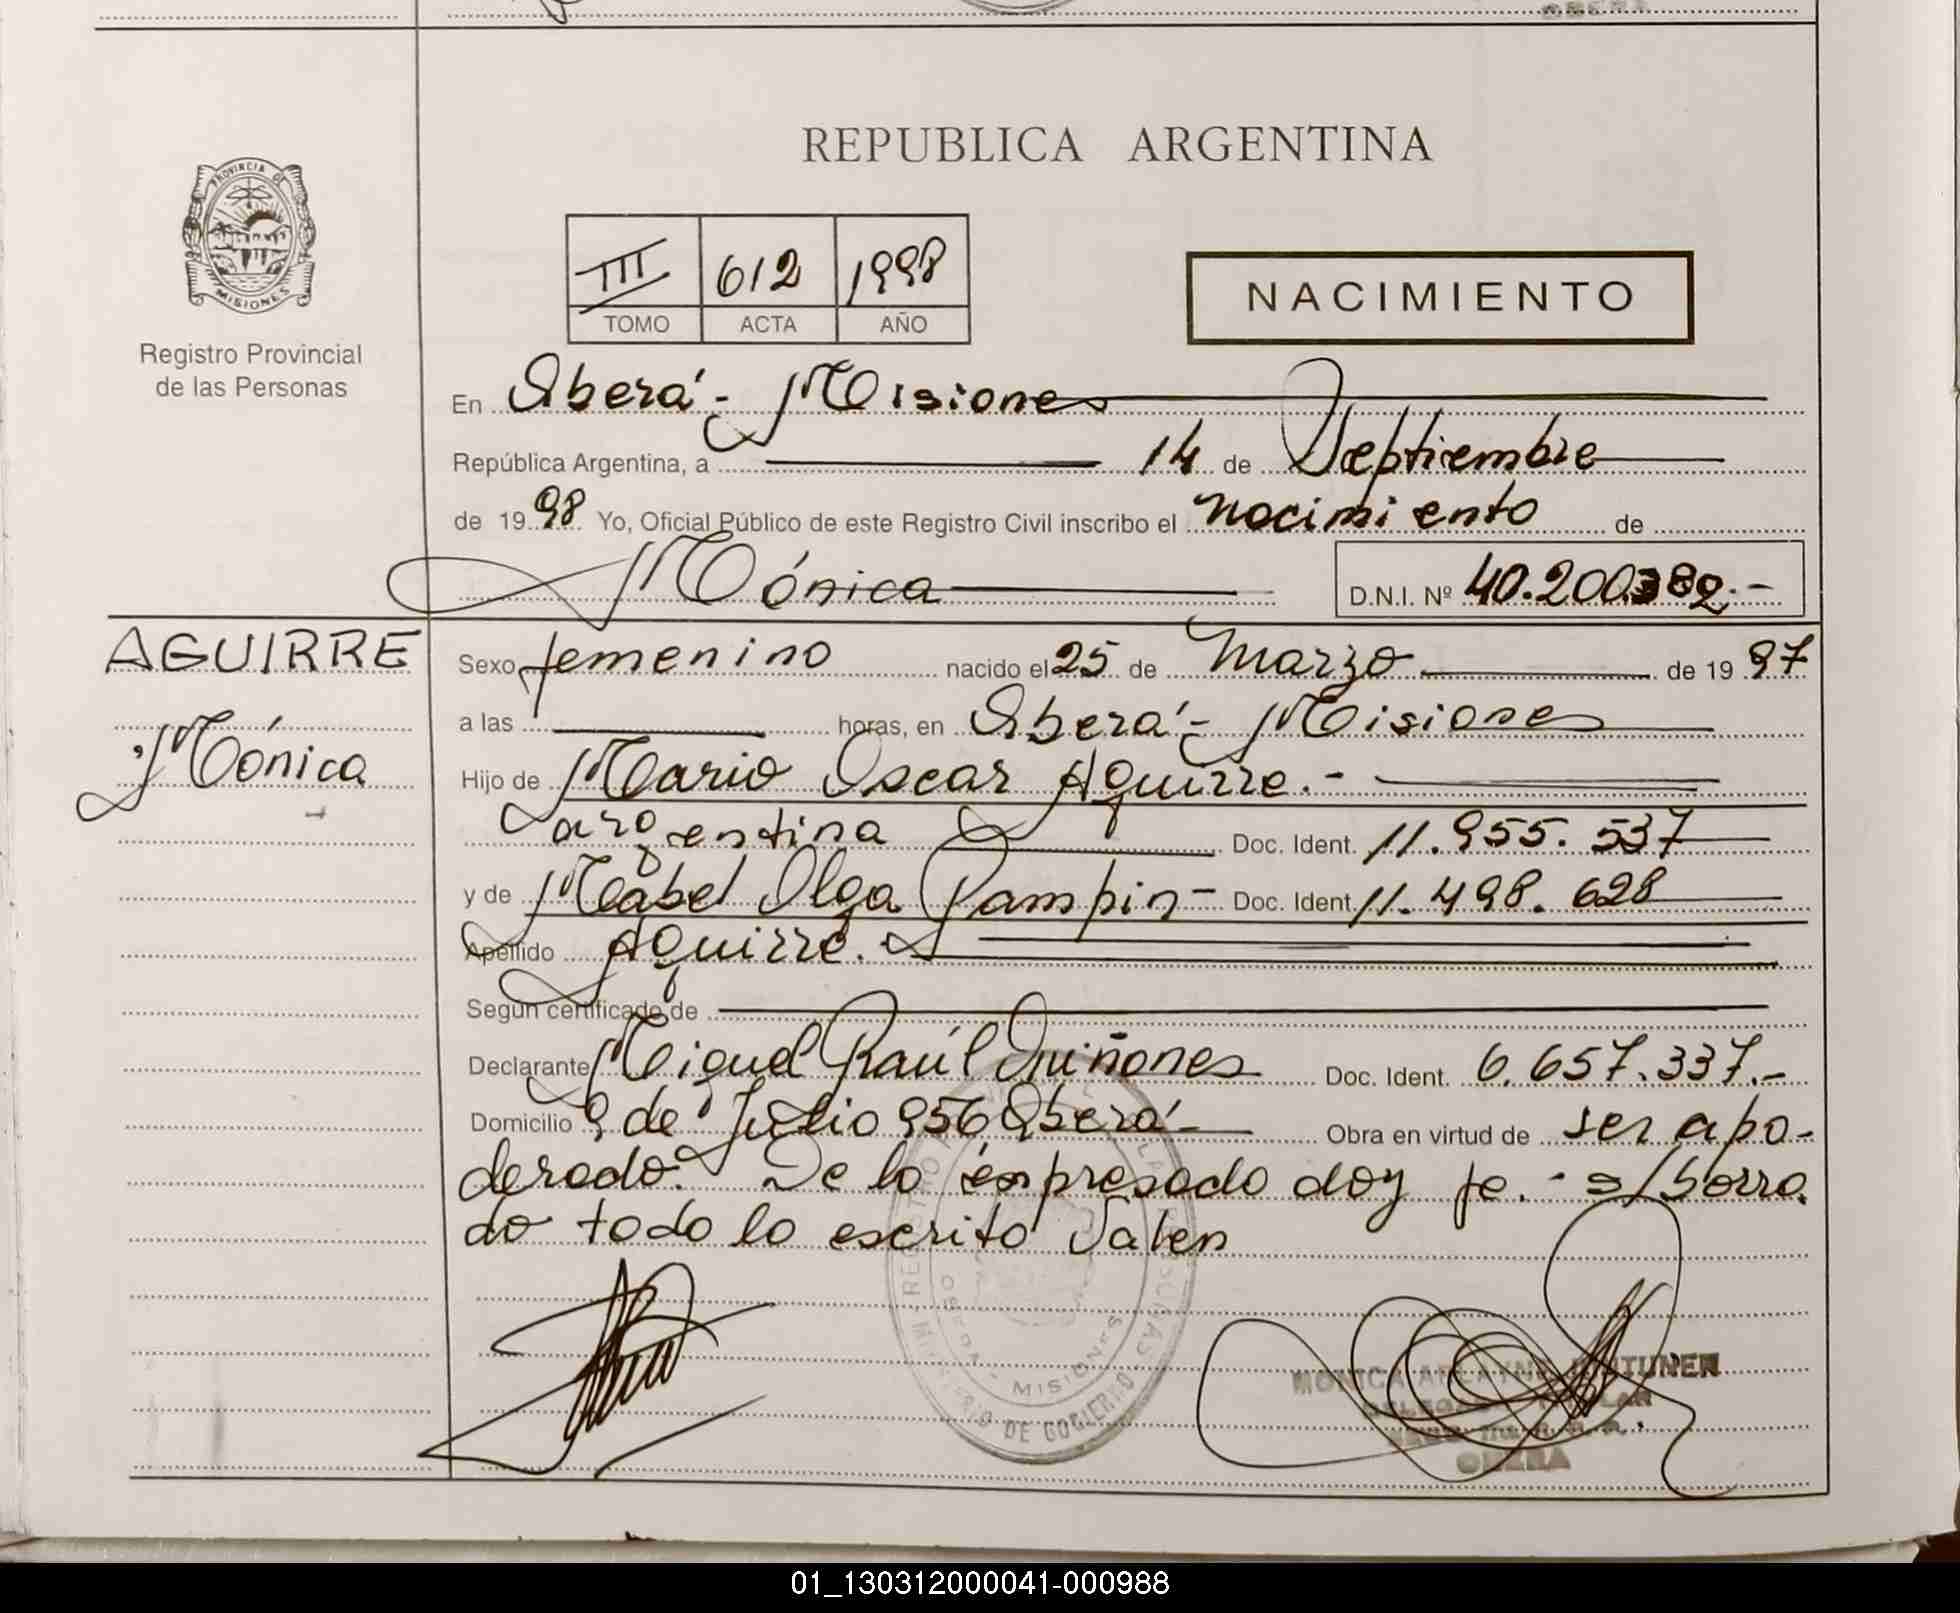 REPUBLICA ARGENTINA
PROVINCIA DE
MISIONES
Registro Provincial
de las Personas
III 612 1998
TOMO ACTA AÑO
NACIMIENTO
En Oberá - Misiones
República Argentina, a 14 de Septiembre
de 1998 Yo, Oficial Público de este Registro Civil inscribo el nacimiento de
Mónica D.N.I. Nº 40.200.382.-
AGUIRRE
Mónica
Sexo femenino nacido el 25 de Marzo de 1997
a las horas, en Oberá - Misiones
Hijo de Mario Oscar Aguirre.-
argentina Doc. Ident. 11.955.537
y de Mabel Olga Pampin - Doc. Ident. 11.498.628
Apellido Aguirre.
Según certificado de
Declarante Miguel Raúl Quiñones Doc. Ident. 6.657.337.-
Domicilio 9 de Julio 956 Oberá - Obra en virtud de ser apo-
derado. De lo expresado doy fe. - s/borra
do todo lo escrito Valen
MISIONES
DE GOBIERNO
MONICA
OBERA
01_130312000041-000988